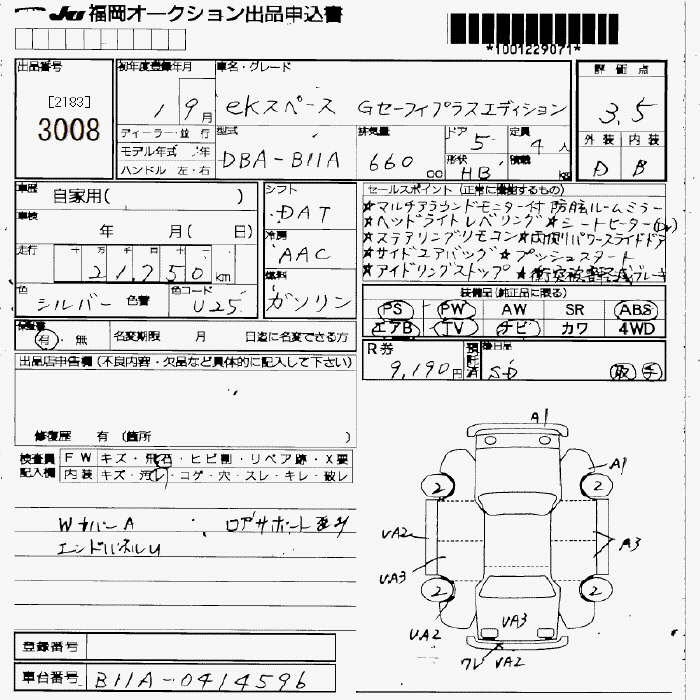 Ju 福岡オークション出品申込書
*1001229071*
出品番号 [2183] 3008
初年度登録年月 1 9月
車名・グレード ekスペース Gセーフィプラスエディション
評価点 3.5
外装 D 内装 B
ディーラー・並行
モデル年式 年
ハンドル 左・右
型式 DBA-B11A
排気量 660 cc
ドア 5
定員 4人
形状 HB
積載 kg
車歴 自家用( )
車検 年 月( 日)
走行 十万 万 千 百 十 21,750km
色 シルバー 色替 色コード U25
シフト DAT
冷房 AAC
燃料 ガソリン
セールスポイント(正常に機能するもの)
★マルチアラウンドモニター付 防眩ルームミラー
★ヘッドライトレベリング ★シートヒーター(Dr)
★ステアリングリモコン ★両側パワースライドドア
★サイドエアバッグ ★プッシュスタート
★アイドリングストップ ★衝突被害軽減ブレーキ
装備品(純正品に限る)
PS PW AW SR ABS
エアB TV ナビ カワ 4WD
保証書 有・無
名変期限 月 日迄に名変できる方
R券 9,190円
預託済
後日品 SD
取 手
出品店申告欄(不良内容・欠品など具体的に記入して下さい)
修復歴 有(箇所 )
検査員記入欄
FW キズ・飛石・ヒビ割・リペア跡・X要
内装 キズ・汚レ・コゲ・穴・スレ・キレ・破レ
WカバーA ロアサポート歪み
エンドパネルU
A1
A1
2
2
UA2
A3
UA3
2
2
UA2
UA3
ワレ UA2
登録番号
車台番号 B11A-0414596